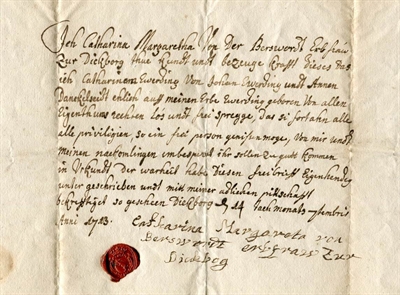 Ich Catharina Margaretha Von der Berswordt Erbfraw
Zur Dickborg thue Kundt undt bezeuge Krafft dieses das
ich Catharinen Ewerding Von Johan Ewerding undt Annen
ehlich auff meinen Erbe Ewerding geboren Von allen
Eigenthumbs rechten Los undt frei spregge, das si fortahn alle
alle priviligien, so ein frei person genissen moge, Von mir undt
meinen nackomlingen unbesperet ihr sollen zu gudt kommen
in Urkundt der warheit habe Diesen freibrieff Eigenhendig
unter geschrieben undt mit meiner adlichen pittschafft
bekrefftiget so geschein Dickborg d 14
Anni 1713.
Catharina Margareta von
Berswordt erbfraw Zur
Dickborg